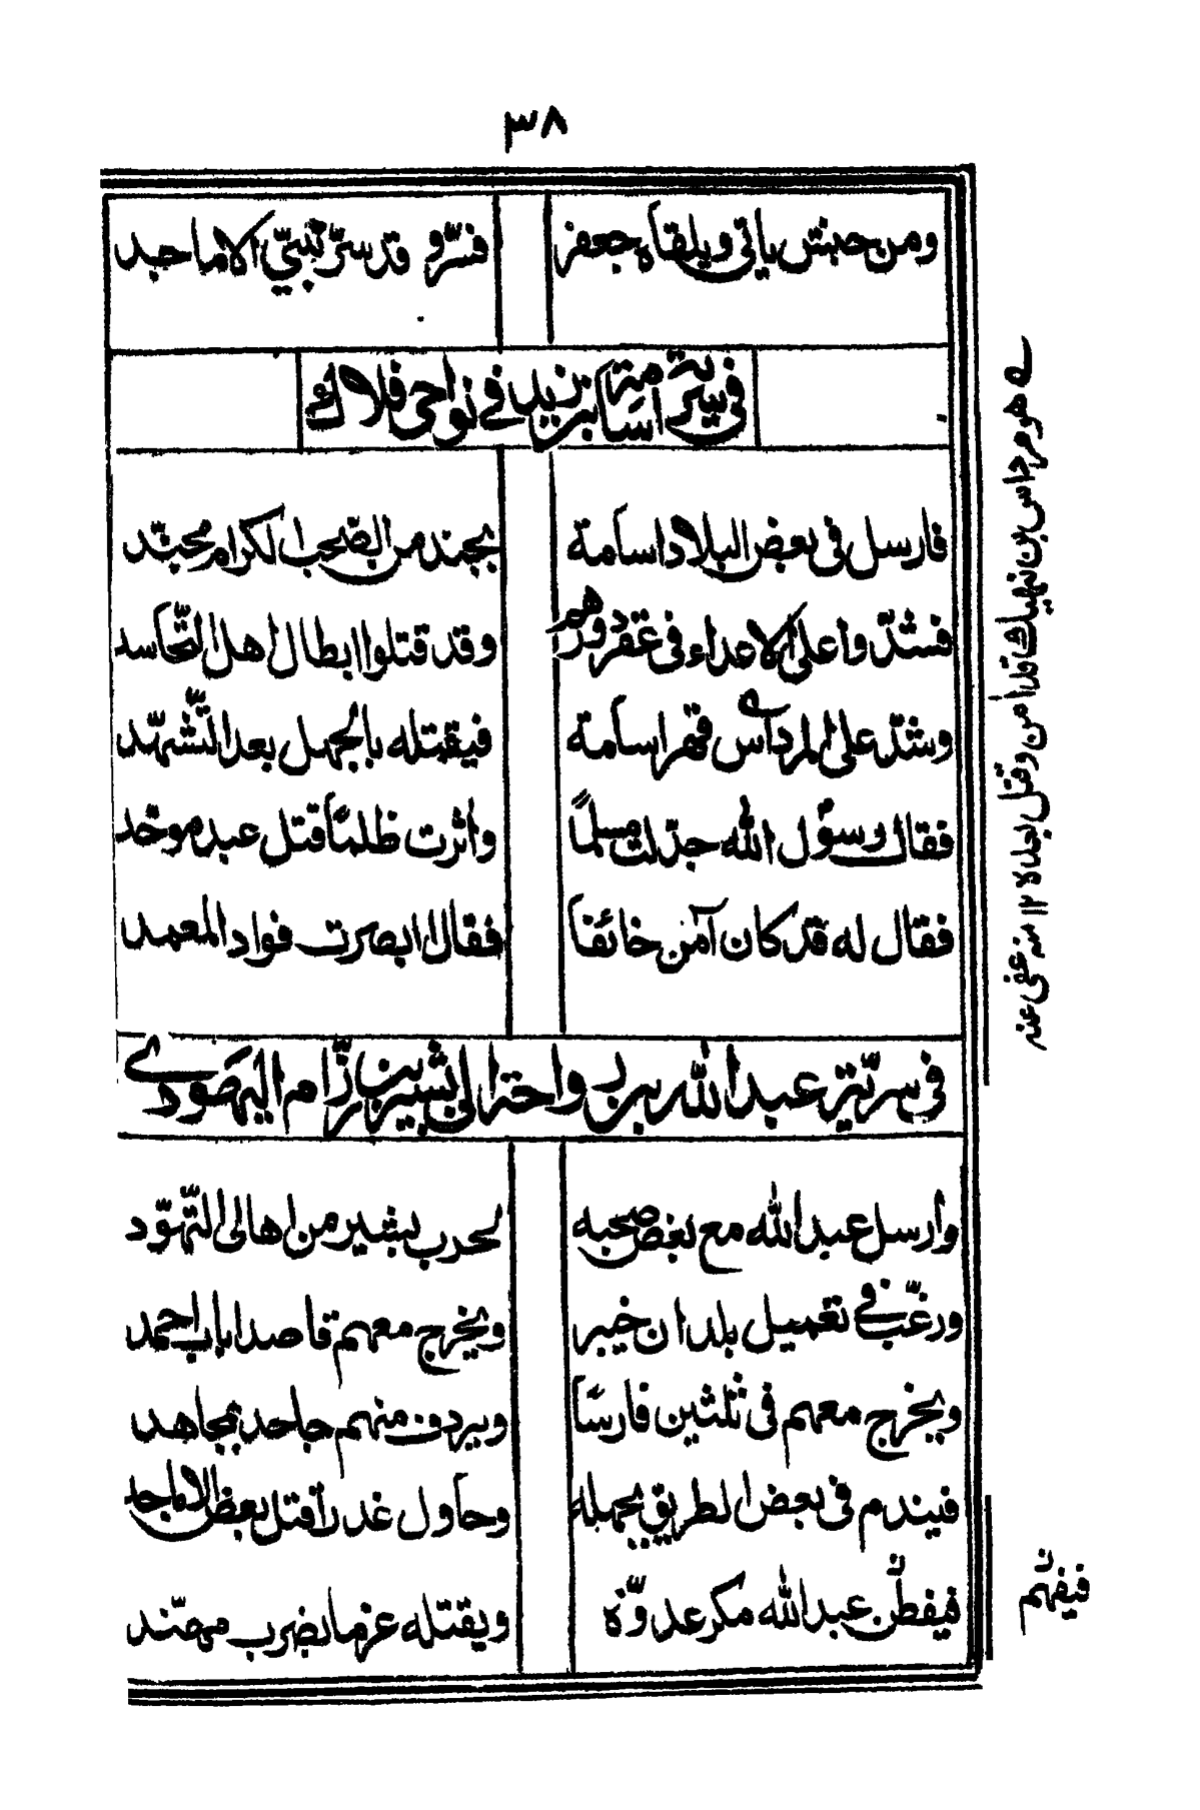 ٣٨
ومن حبش ياتي ويلقاه جعفر فسرّ و قد سرّ نبيّ الاماجد
في سرية اسامة بن زيد في نواحي فدك
فارسل في بعض البلاد اسامة بجند من الصّحب الكرام محتّد
فشدّوا على الاعداء في عقر دورهم وقد قتلوا ابطال اهل التّحاسد
وشدّ على المرداس قهرا سامة فيقتله بالجهل بعد التّشهّد
فقال رسول الله جدّلت مسلمًا واثرت ظلمًا قتل عبد موحّد
فقال له قد كان آمن خائفا فقال ابصرت فواد المعمد
في سرّية عبد الله بن رواحة الى بشير بن رزام اليهودي
وارسل عبد الله مع بعض صحبه لحرب بشير من اهالى التّهوّد
ورغّب في تعميل بلدان خيبر ويخرج معهم قاصدا باب احمد
ويخرج معهم في ثلثين فارسًا ويردف منهم جاحد بمجاهد
فيندم في بعض الطريق بجهله وحاول غدرا قتل بعض الاماجد
فيفطن عبد الله مكر عدوّه ويقتله عزما بضرب مهنّد
هو مرداس بن نهيك قد امن وقتل بعد لا ١٢ منه عفى عنه
فيفهم